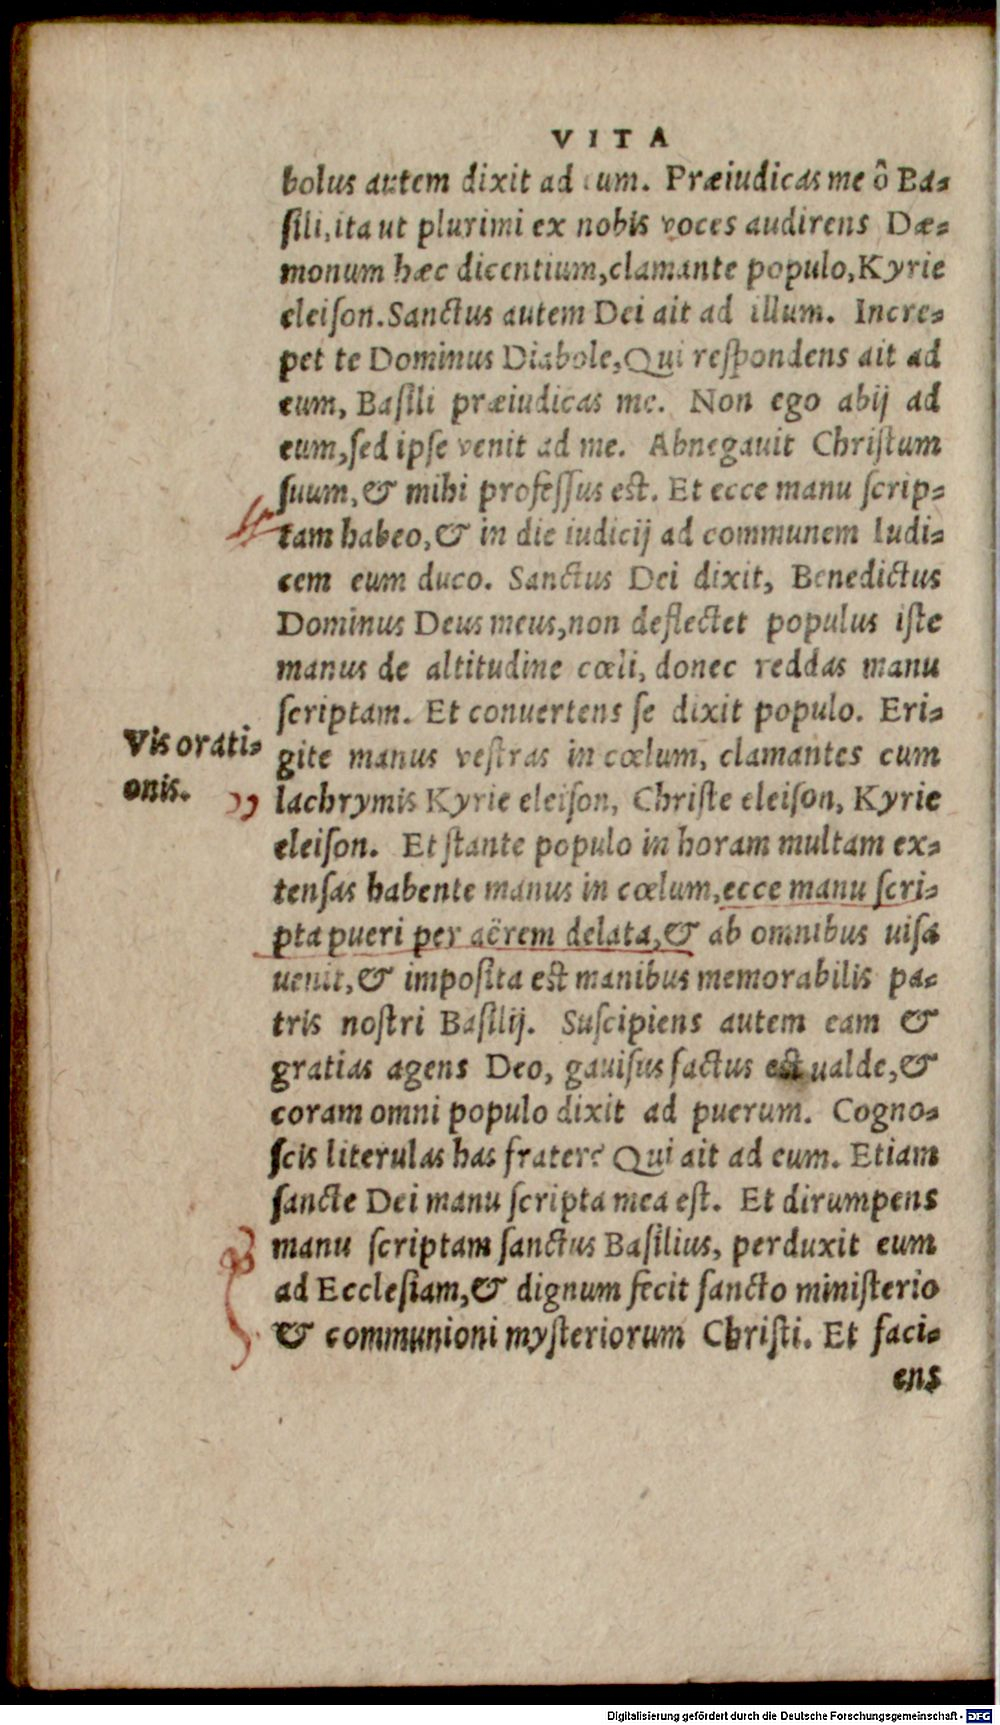 VITA
bolus autem dixit ad eum. Præiudicas me ô Ba-
ſili, ita ut plurimi ex nobis voces audirens Dæ-
monum hæc dicentium, clamante populo, Kyrie
eleiſon. Sanctus autem Dei ait ad illum. Incre-
pet te Dominus Diabole, Qui reſpondens ait ad
eum, Baſili præiudicas me. Non ego abij ad
eum, ſed ipſe venit ad me. Abnegauit Chriſtum
ſuum, & mihi profeſſus est. Et ecce manu ſcrip-
tam habeo, & in die iudicij ad communem Iudi-
cem eum duco. Sanctus Dei dixit, Benedictus
Dominus Deus meus, non deflectet populus iſte
manus de altitudine cœli, donec reddas manu
ſcriptam. Et conuertens ſe dixit populo. Eri-
Vis orati-
gite manus veſtras in cœlum, clamantes cum
onis.
lachrymis Kyrie eleiſon, Chriſte eleiſon, Kyrie
eleiſon. Et ſtante populo in horam multam ex-
tenſas habente manus in cœlum, ecce manu ſcri-
pta pueri per aërem delata, & ab omnibus uiſa
uenit, & impoſita est manibus memorabilis pa-
tris noſtri Baſilij. Suſcipiens autem eam &
gratias agens Deo, gauiſus factus est ualde, &
coram omni populo dixit ad puerum. Cogno-
ſcis literulas has frater? Qui ait ad eum. Etiam
ſancte Dei manu ſcripta mea eſt. Et dirumpens
manu ſcriptam ſanctus Baſilius, perduxit eum
ad Eccleſiam, & dignum fecit ſancto miniſterio
& communioni myſteriorum Chriſti. Et faci-
ens
Digitalisierung gefördert durch die Deutsche Forschungsgemeinschaft - DFG